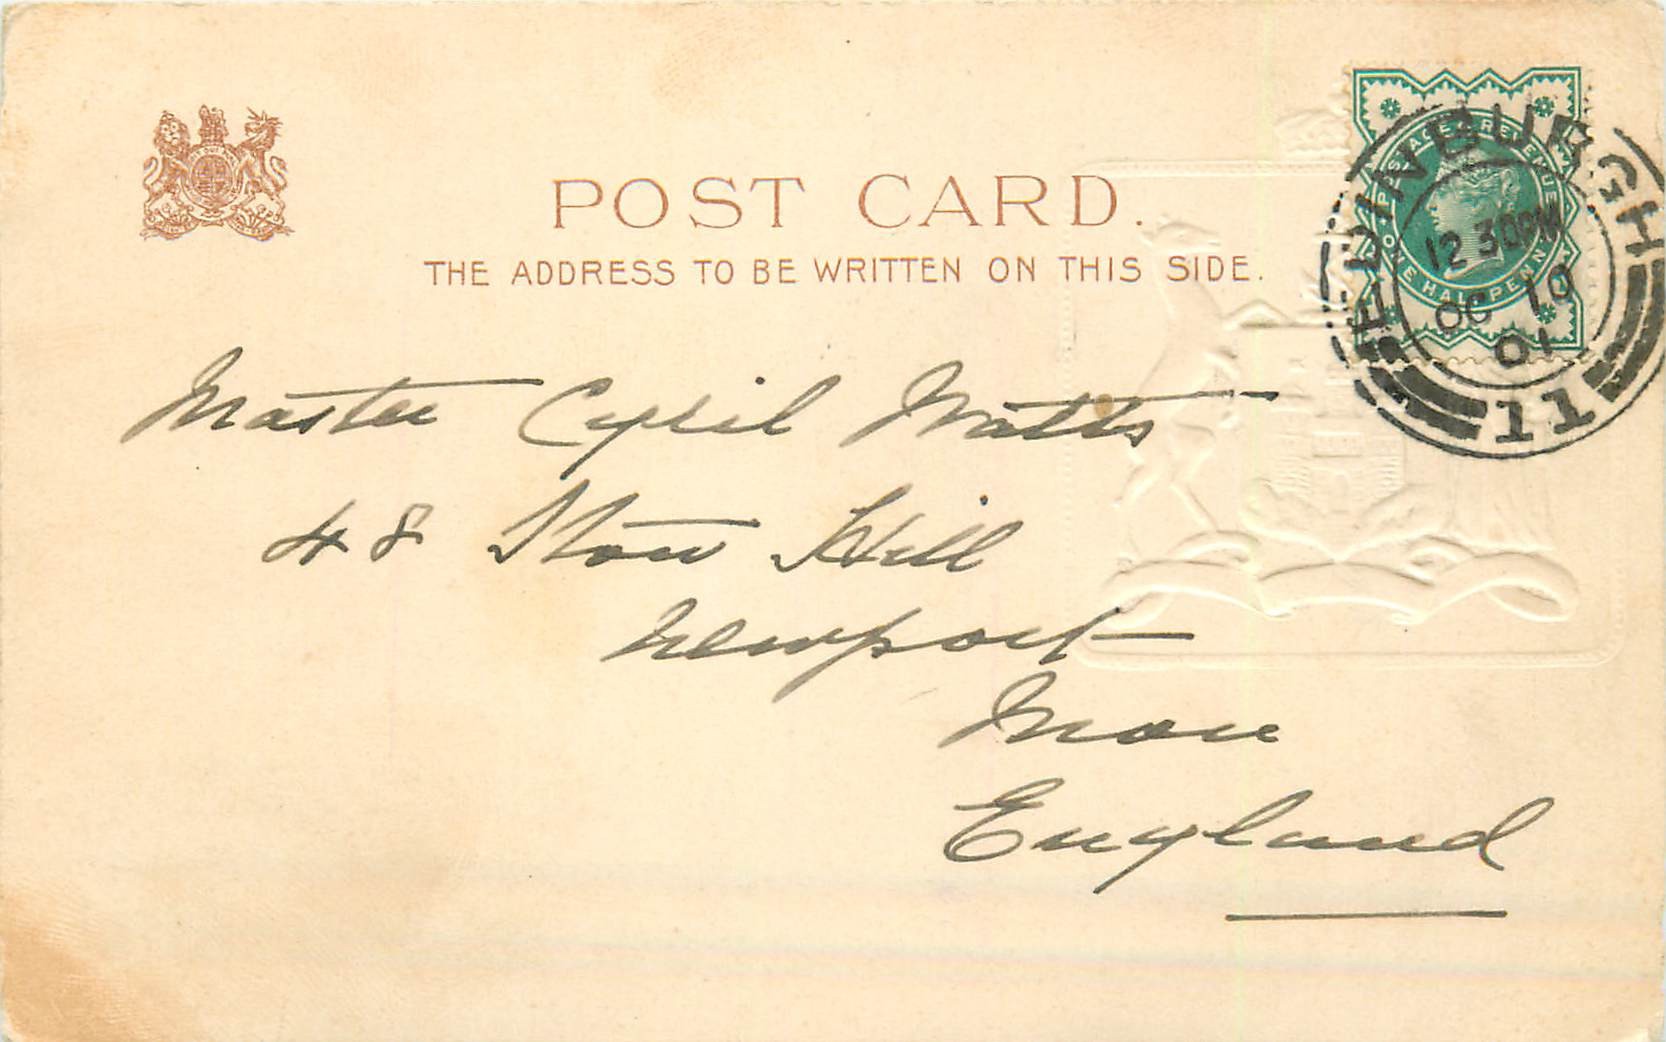 POST CARD.
THE ADDRESS TO BE WRITTEN ON THIS SIDE.
POSTAGE & REVENUE
ONE HALFPENNY
EDINBURGH
12 30PM
OC 10
01
11
Master Cyril Watts
48 Stow Hill
Newport
Mon
England